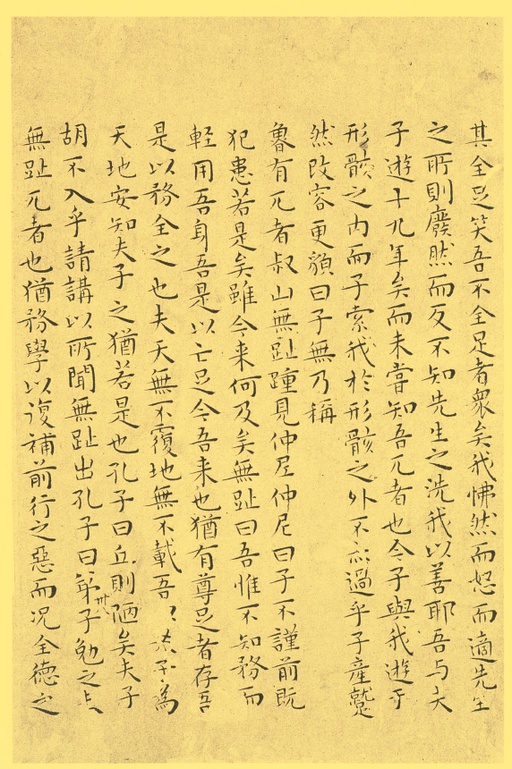 其全足笑吾不全足者衆矣我怫然而怒而適先生
之所則廢然而反不知先生之洗我以善耶吾与夫
子遊十九年矣而未嘗知吾兀者也今子與我遊乎
形骸之内而子索我於形骸之外不亦過乎子産蹵
然改容更貌曰子無乃稱
魯有兀者叔山無趾踵見仲尼仲尼曰子不謹前既
犯患若是矣雖今来何及矣無趾曰吾惟不知務而
軽用吾身吾是以亡足今吾来也猶有尊足者存吾
是以務全之也夫天無不覆地無不載吾以夫子為
天地安知夫子之猶若是也孔子曰丘則陋矣夫子
胡不入乎請講以所聞無趾出孔子曰弟子勉之
無趾兀者也猶務學以復補前行之惡而况全德之